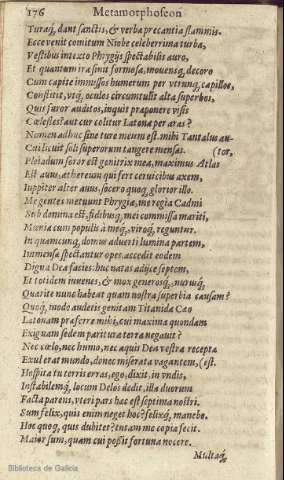 176 Metamorphoseon
Turaq́;, dant sanctis, & verba precantia flammis.
Ecce venit comitum Niobe celeberrima turba,
Vestibus intexto Phrygijs spectabilis auro,
Et quantum ira sinit formosa, mouensq́; decoro
Cum capite immissos humerum per vtrunq́; capillos,
Constitit, vtq́; oculos circumtulit alta superbos,
Quis furor auditos, inquit præponere visis
Cælestes? aut cur colitur Latona per aras?
Nomen adhuc sine ture meum est. mihi Tantalus au-
Cui licuit soli superorum tangere mensas. (tor,
Pleiadum soror est genitrix mea, maximus Atlas
Est auus, æthereum qui fert ceruicibus axem,
Iuppiter alter auus, socero quoq́; glorior illo.
Me gentes metuunt Phrygiæ, me regia Cadmi
Sub domina est, fidibusq́; mei commissa mariti,
Mœnia cum populis à meq́;, viroq́; reguntur.
In quamcunq́; domus aduerti lumina partem,
Immensæ spectantur opes. accedit eodem
Digna Dea facies. huc natas adijce septem,
Et totidem iuuenes, & mox generosq́;, nurusq́;
Quærite nunc habeat quam nostra superbia causam?
Quoq́; modo audetis genitam Titanida Cæo
Latonam præferre mihi, cui maxima quondam
Exiguam sedem parituræ terra negauit?
Nec cœlo, nec humo, nec aquis Dea vestra recepta
Exul erat mundo, donec miserata vagantem, (est.
Hospita tu terris erras, ego, dixit, in vndis,
Instabilemq́; locum Delos dedit. illa duorum
Facta parens, vteri pars hæc est septima nostri.
Sum felix, quis enim neget hoc? felixq́; manebo.
Hoc quoq́; quis dubitet? tutam me copia fecit.
Maior sum, quam cui possit fortuna nocere.
Multaq́;
Biblioteca de Galicia